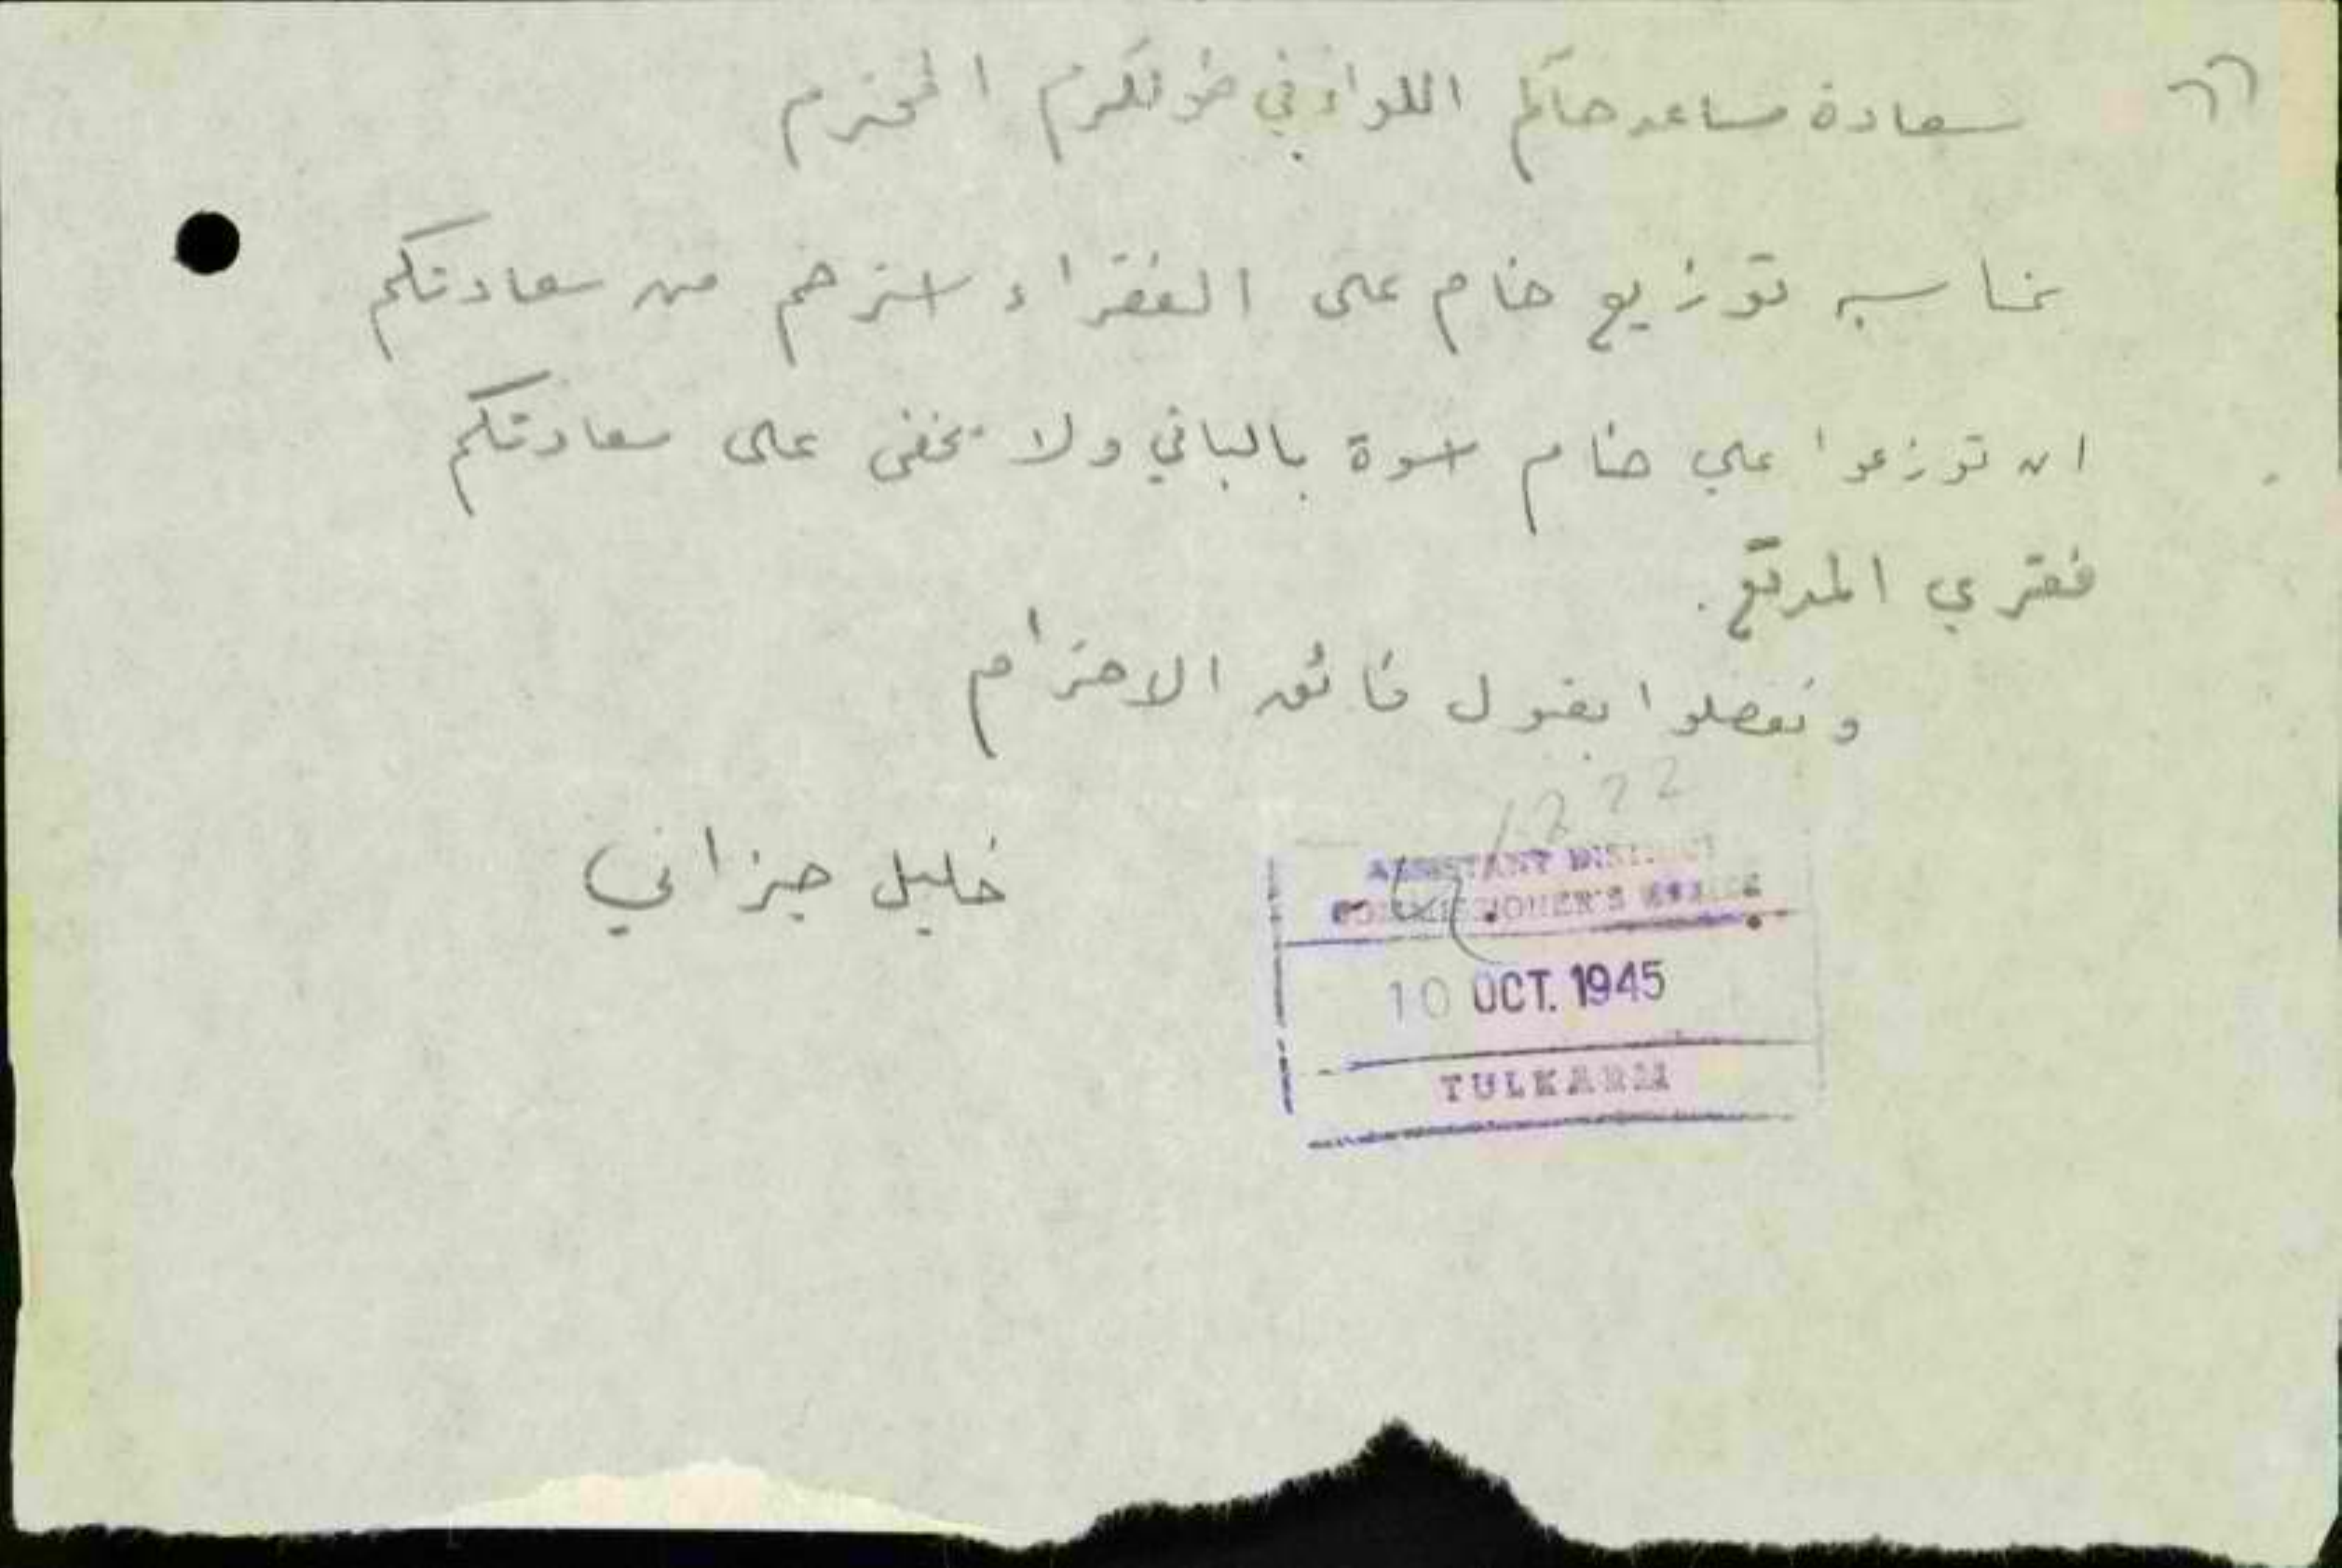 ٦٦
سعادة مساعد حاكم اللواء في طولكرم المحترم
بمناسبة توزيع خام على الفقراء استرحم من سعادتكم
ان توزعوا علي خام اسوة بالباقي ولا يخفى على سعادتكم
فقري المدقع.
وتفضلوا بقبول فائق الاحترام
خليل جيزاني
ASSISTANT DISTRICT
COMMISSIONER'S OFFICE
10 OCT. 1945
TULKARM